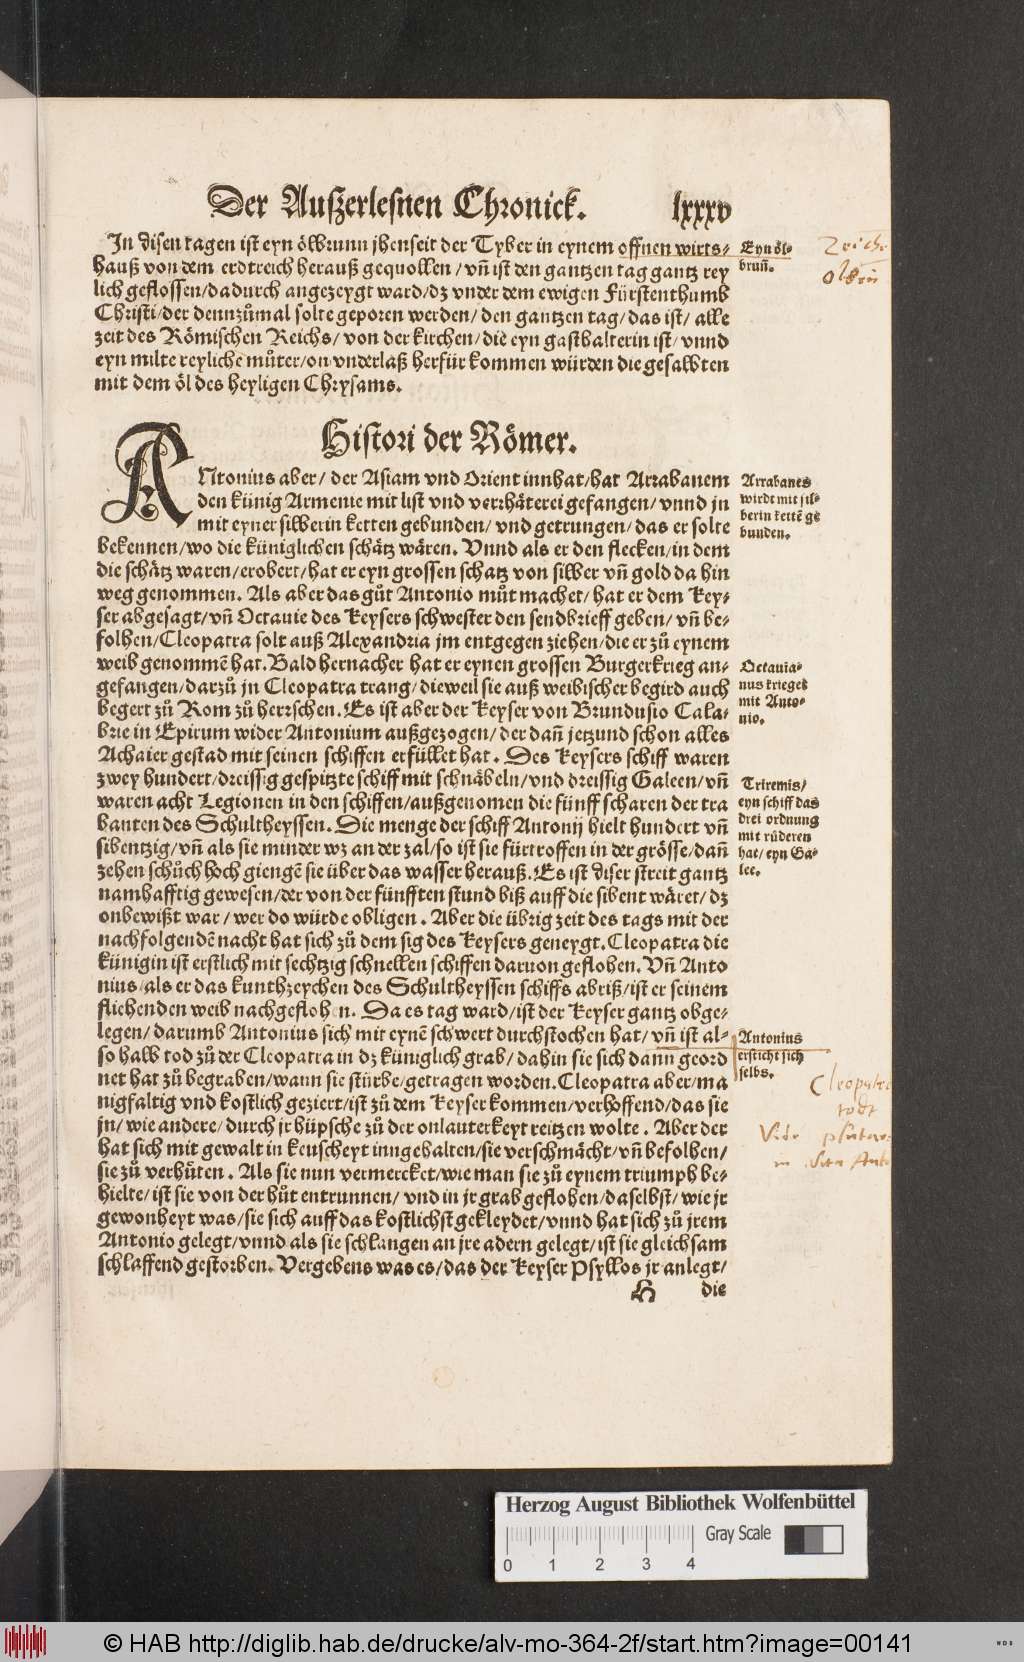 Der Außzerlesnen Chronick. lxxxv
Jn disen tagen ist eyn ölbrunn jhenseit der Tyber in eynem offnen wirts⸗
hauß von dem erdtreich herauß gequollen / vñ ist den gantzen tag gantz rey
lich geflossen/dadurch angezeygt ward/dz vnder dem ewigen Fürstenthumb
Christi/der dennzůmal solte geporen werden/den gantzen tag/das ist/alle
zeit des Römischen Reichs/von der kirchen/die eyn gasthalterin ist/vnnd
eyn milte reyliche můter/on vnderlaß herfür kommen würden die gesalbten
mit dem öl des heyligen Chrysams.
Eyn öl⸗
brun̄.
Histori der Römer.
ANtonius aber/ der Asiam vnd Orient innhat/hat Arrabanem
den künig Armenie mit list vnd verrhäterei gefangen/vnnd jn
mit eyner silberin ketten gebunden/ vnd getrungen/das er solte
bekennen/wo die küniglichen schätz wären. Vnnd als er den flecken/in dem
die schätz waren/erobert/hat er eyn grossen schatz von silber vñ gold da hin
weg genommen. Als aber das gůt Antonio můt machet/hat er dem Key⸗
ser abgesagt/vñ Octauie des Keysers schwester den sendbrieff geben/vñ be⸗
folhen/Cleopatra solt auß Alexandria jm entgegen ziehen/die er zů eynem
weib genommē hat. Bald hernacher hat er eynen grossen Burgerkrieg an⸗
gefangen/darzů jn Cleopatra trang/dieweil sie auß weibischer begird auch
begert zů Rom zů herrschen. Es ist aber der Keyser von Brundusio Cala⸗
brie in Epirum wider Antonium außgezogen/der dañ jetzund schon alles
Achaier gestad mit seinen schiffen erfüllet hat. Des Keysers schiff waren
zwey hundert/dreissig gespitzte schiff mit schnäbeln/vnd dreissig Galeen/vñ
waren acht Legionen in den schiffen/außgenomen die fünff scharen der tra
banten des Schultheyssen. Die menge der schiff Antonij hielt hundert vñ
sibentzig/vñ als sie minder wz an der zal/so ist sie fürtroffen in der grösse/dañ
zehen schůch hoch giengē sie über das wasser herauß. Es ist diser streit gantz
namhafftig gewesen/der von der fünfften stund biß auff die sibent wäret/dz
onbewißt war/wer do würde obligen. Aber die übrig zeit des tags mit der
nachfolgendē nacht hat sich zů dem sig des Keysers geneygt. Cleopatra die
künigin ist erstlich mit sechtzig schnellen schiffen daruon geflohen. Vñ Anto
nius/als er das kunthzeychen des Schultheyssen schiffs abriß/ist er seinem
fliehenden weib nachgeflohen. Da es tag ward/ist der Keyser gantz obge⸗
legen/darumb Antonius sich mit eynē schwert durchstochen hat/vñ ist al⸗
so halb tod zů der Cleopatra in dz küniglich grab/dahin sie sich dann geord
net hat zů begraben/wann sie stürbe/getragen worden. Cleopatra aber/ma
nigfaltig vnd kostlich geziert/ist zů dem Keyser kommen/verhoffend/das sie
jn/wie andere/durch jr hüpsche zů der onlauterkeyt reitzen wolte. Aber der
hat sich mit gewalt in keuscheyt inngehalten/sie verschmächt/vñ befolhen/
sie zů verhüten. Als sie nun vermercket/wie man sie zů eynem triumph be⸗
hielte/ist sie von der hůt entrunnen/vnd in jr grab geflohen/daselbst/wie jr
gewonheyt was/sie sich auff das kostlichst gekleydet/vnnd hat sich zů jrem
Antonio gelegt/vnnd als sie schlangen an jre adern gelegt/ist sie gleichsam
schlaffend gestorben. Vergebens was es/das der Keyser Psyllos jr anlegt/
H die
Arrabanes
wirdt mit sil⸗
berin kettē ge
bunden.
Octauia⸗
nus krieget
mit Anto⸗
nio.
Triremis/
eyn schiff das
drei ordnung
mit růderen
hat/eyn Ga⸗
lee.
Antonius
ersticht sich
selbs.
Cleopatra
todt
Vide
in Anto
Herzog August Bibliothek Wolfenbüttel
Gray Scale
0 1 2 3 4
© HAB http://diglib.hab.de/drucke/alv-mo-364-2f/start.htm?image=00141